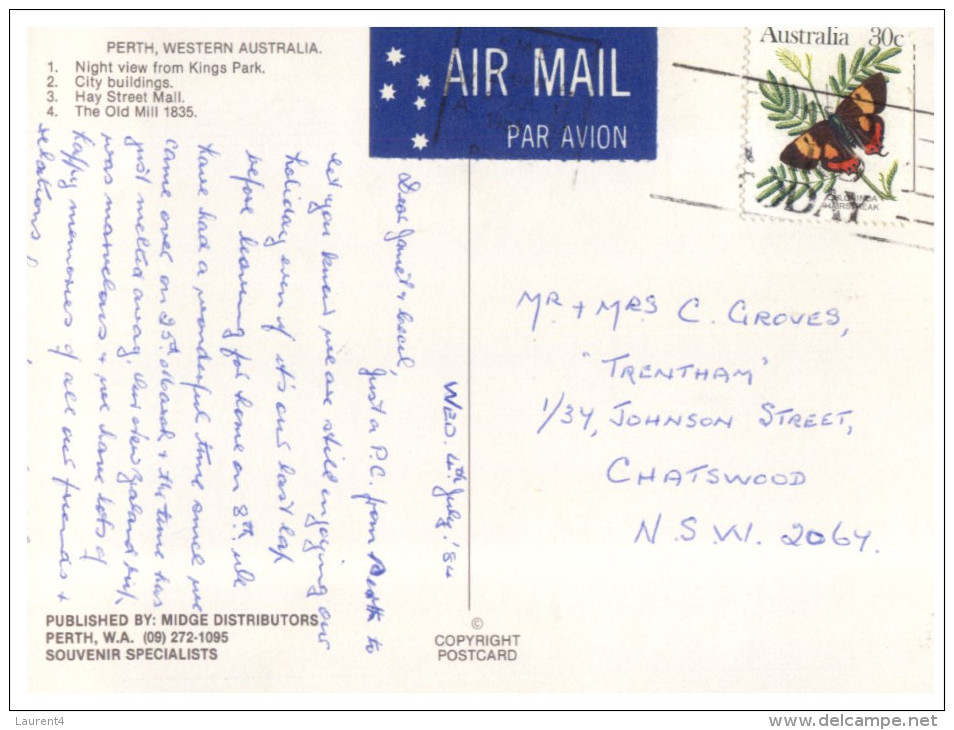 PERTH, WESTERN AUSTRALIA.
1. Night view from Kings Park.
2. City buildings.
3. Hay Street Mall.
4. The Old Mill 1835.
AIR MAIL
PAR AVION
Australia 30c
CHLORINDA
HAIRSTREAK
WED. 4th July. '84
Dear Janet + Cecil,
Just a P.C. from Perth to
let you know we are still injoying our
holiday even if it's our last lap
before leaving for home on 8th. We
have had a wonderful time since we
came over on 25th March + the time has
just melted away. Our New Zealand trip,
was marvelous + we have lots of
happy memories of all our friends +
relations
MR + MRS C. GROVES,
"TRENTHAM"
1/34, JOHNSON STREET,
CHATSWOOD
N.S.W. 2067.
PUBLISHED BY: MIDGE DISTRIBUTORS
PERTH, W.A. (09) 272-1095
SOUVENIR SPECIALISTS
©
COPYRIGHT
POSTCARD
Laurent4
www.delcampe.net